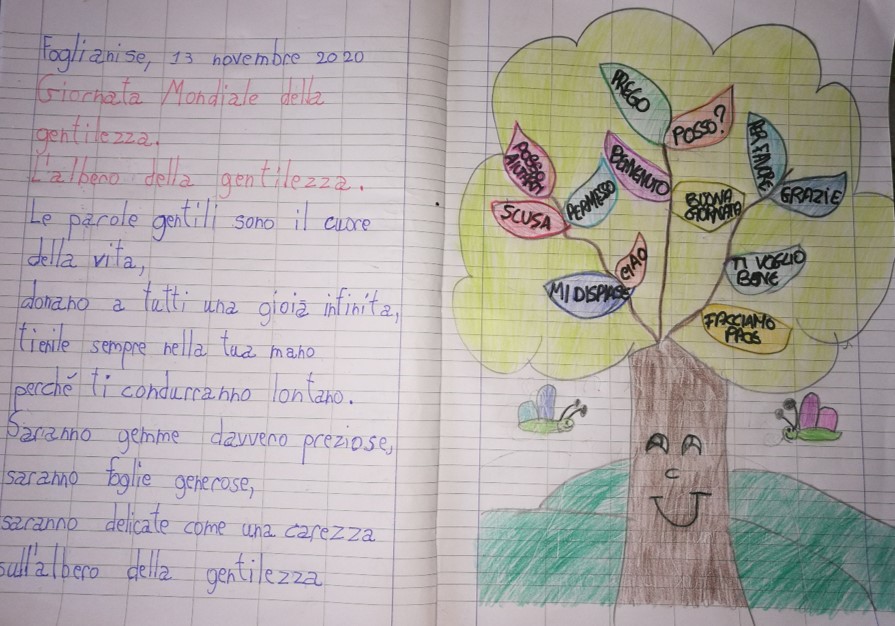 Foglianise, 13 novembre 2020
Giornata Mondiale della
gentilezza.
L'albero della gentilezza.
Le parole gentili sono il cuore
della vita,
donano a tutti una gioia infinita,
tienile sempre nella tua mano
perché ti condurranno lontano.
Saranno gemme davvero preziose,
saranno foglie generose,
saranno delicate come una carezza
sull'albero della gentilezza
PREGO
POSSO?
PER FAVORE
POSSO
BENVENUTO
PERMESSO
BUONA
GIORNATA
GRAZIE
SCUSA
CIAO
TI VOGLIO
BENE
MI DISPIACE
FACCIAMO